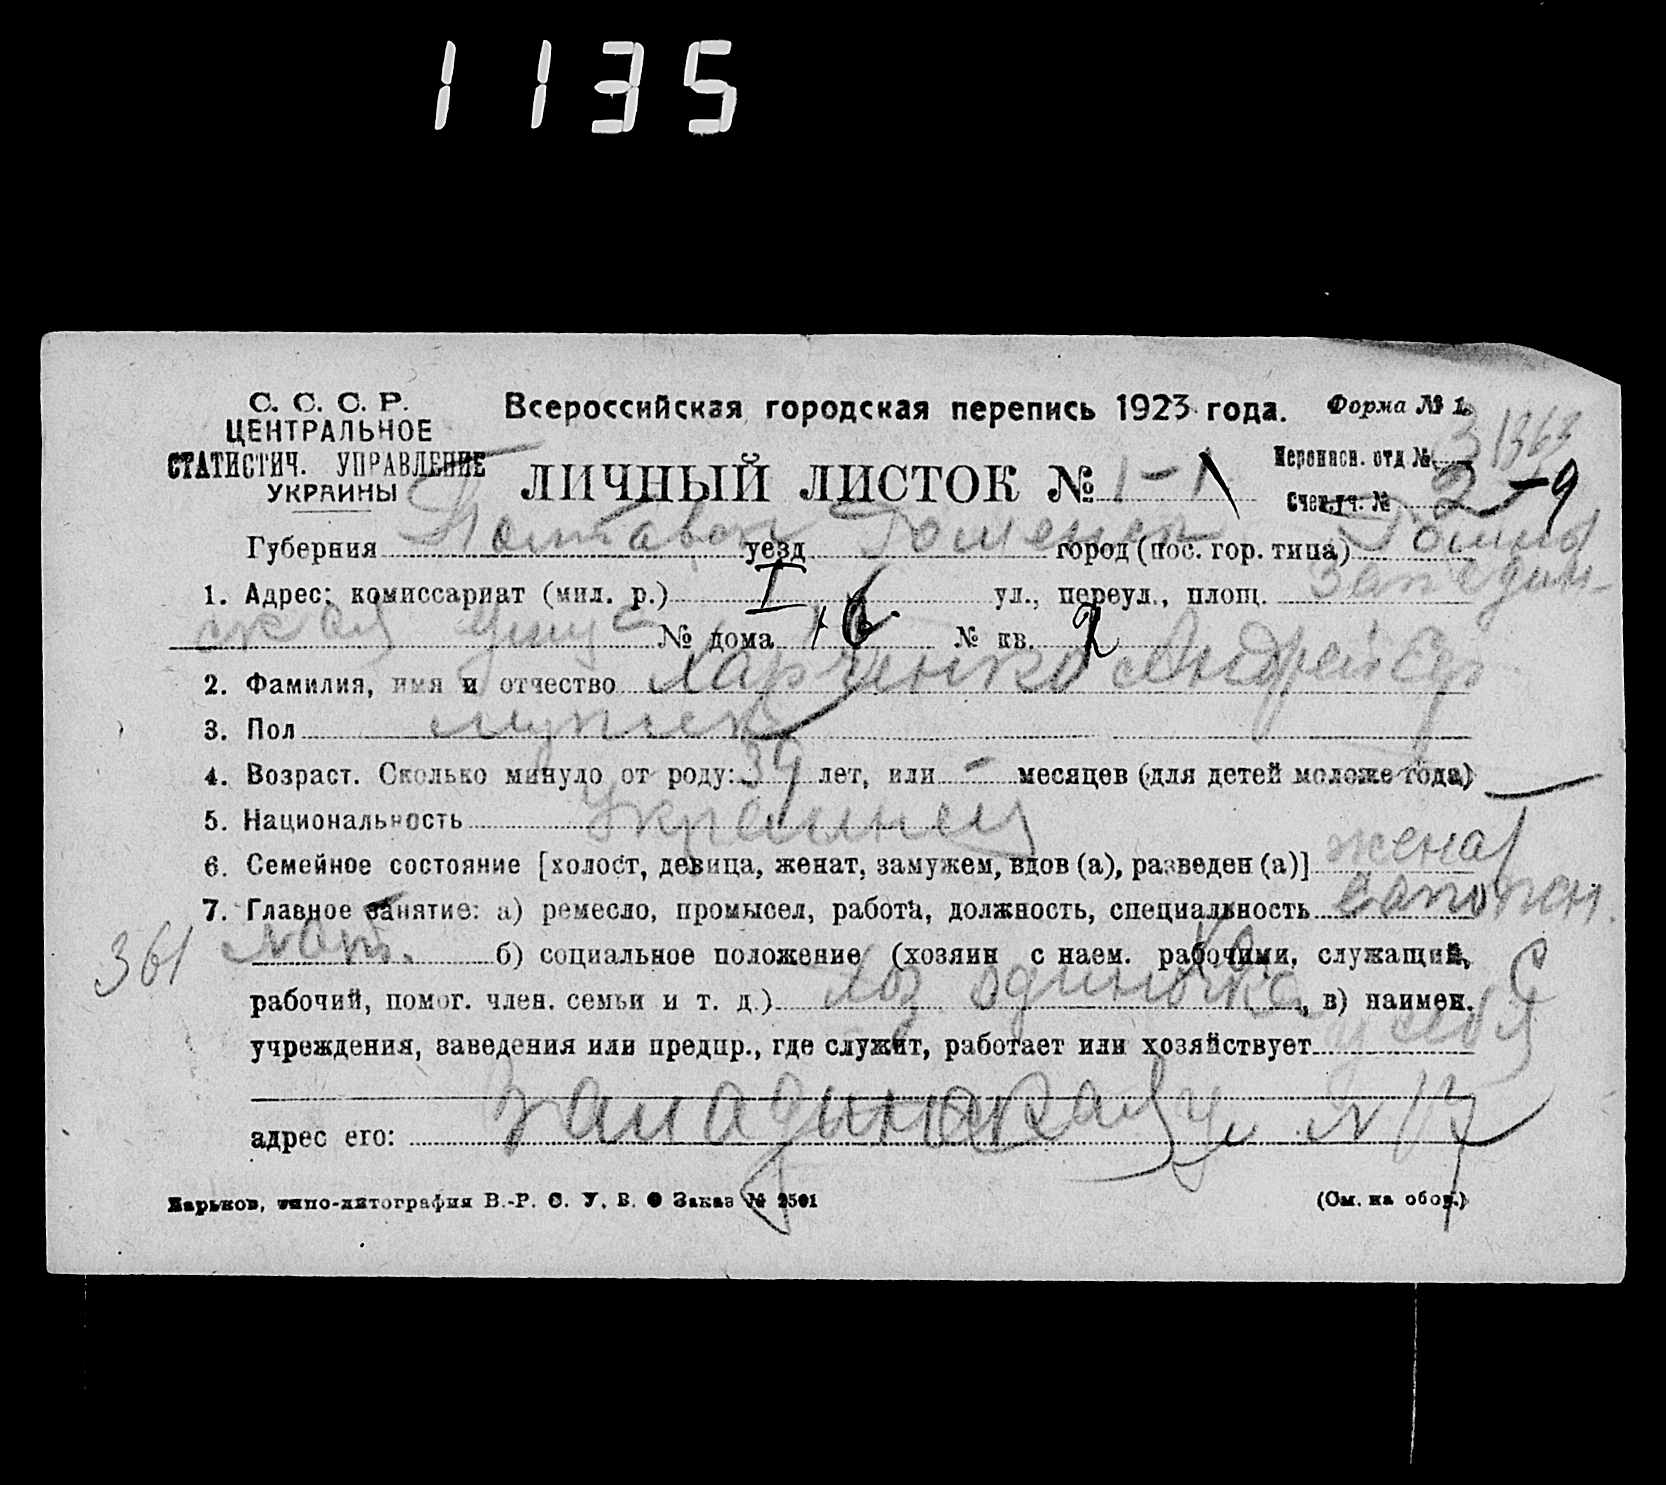 1135
С. С. С. Р.
ЦЕНТРАЛЬНОЕ
СТАТИСТИЧ. УПРАВЛЕНИЕ
УКРАИНЫ
Всероссийская городская перепись 1923 года. Форма № 1.
ЛИЧНЫЙ ЛИСТОК № 1-1
Переписн. отд № 3 1363
Счетн. уч. № 2-9
Губерния Полтавск уезд Роменск город (пос. гор. типа) Ромны
1. Адрес: комиссариат (мил. р.) I ул., переул., площ.
ская улица № дома 16 № кв. 2
2. Фамилия, имя и отчество Харченко Андрей
3. Пол мужск
4. Возраст. Сколько минуло от роду: 39 лет, или - месяцев (для детей моложе года)
5. Национальность Украинец
6. Семейное состояние [холост, девица, женат, замужем, вдов (а), разведен (а)] женат
7. Главное занятие: а) ремесло, промысел, работа, должность, специальность сапожн.
361 б) социальное положение (хозяин с наем. рабочими, служащий,
рабочий, помог. член. семьи и т. д.) хоз одиночка, в) наимен.
учреждения, заведения или предпр., где служит, работает или хозяйствует у себя
адрес его: ул №
Харьков, типо-литография В.-Р. С. У. В. Заказ № 2501 (См. на обор.)